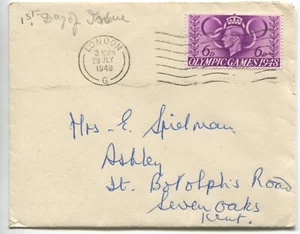 1st Day of Issue
LONDON
3-PM
29 JLY
1948
G
6D 6D
OLYMPIC GAMES 1948
Mrs E. Spielman,
Ashley
St. Botolph's Road
Seven oaks
Kent.